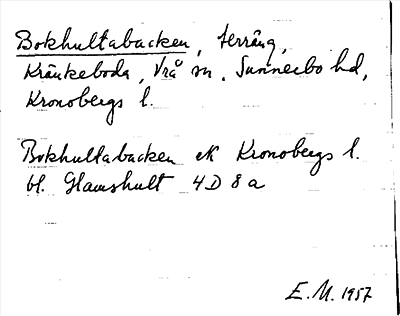 Bokhultabacken, terräng,
Kränkeboda, Vrå sn, Sunnerbo hd,
Kronobergs l.
Bokhultabacken ek Kronobergs l.
bl. Glamshult 4D 8a
E.M. 1957